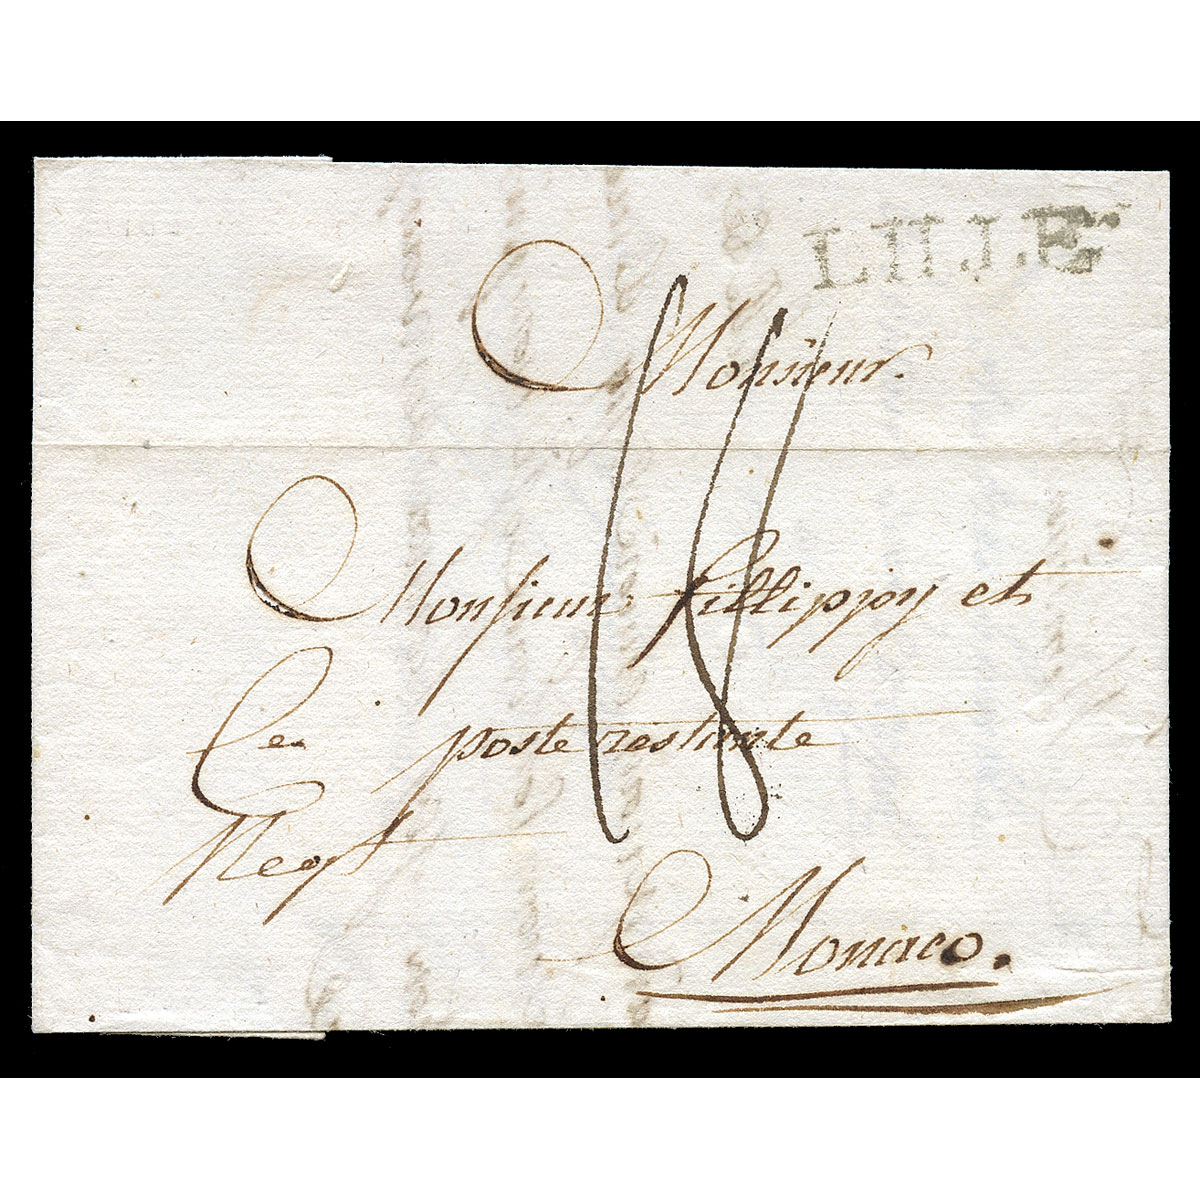 LILLE
Monsieur
Monsieur fillippy et
Ce poste restante
Negt
Monaco.